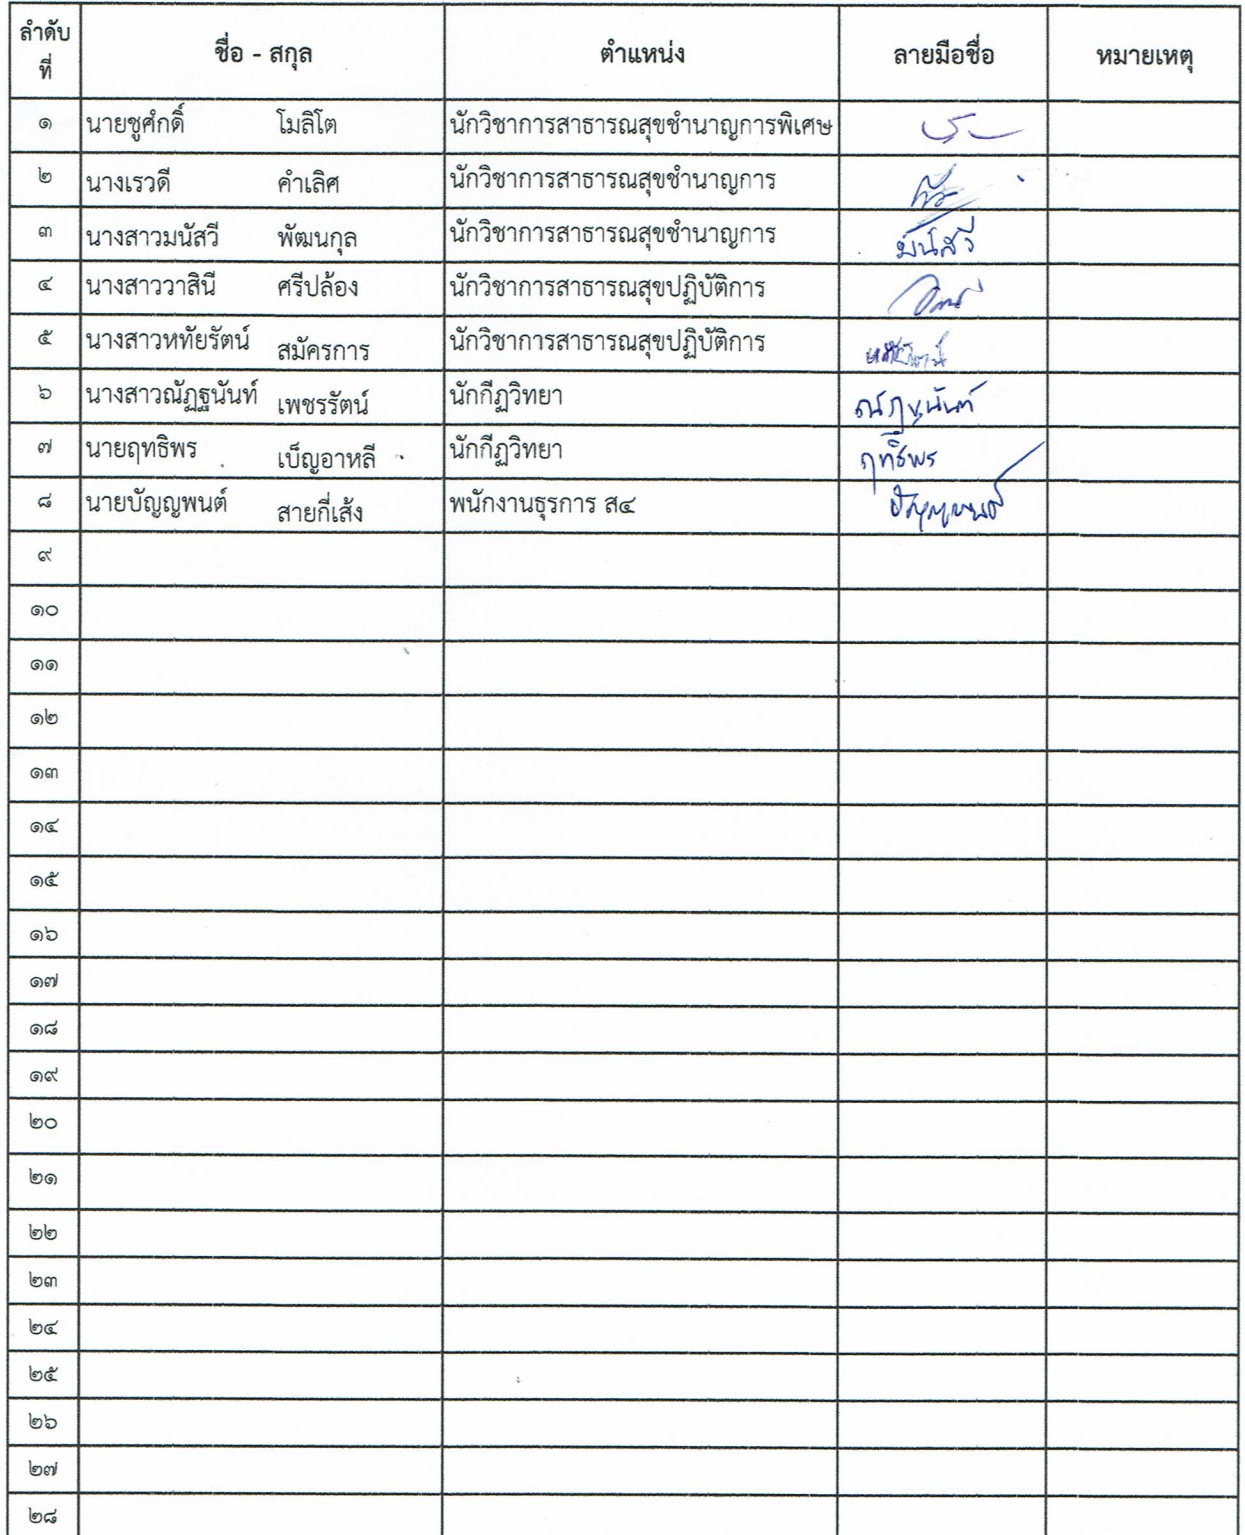 ลำดับที่ ชื่อ - สกุล ตำแหน่ง ลายมือชื่อ หมายเหตุ
๑ นายชูศักดิ์ โมลิโต นักวิชาการสาธารณสุขชำนาญการพิเศษ
๒ นางเรวดี คำเลิศ นักวิชาการสาธารณสุขชำนาญการ
๓ นางสาวมนัสวี พัฒนกุล นักวิชาการสาธารณสุขชำนาญการ มนัสวี
๔ นางสาววาสินี ศรีปล้อง นักวิชาการสาธารณสุขปฏิบัติการ
๕ นางสาวหทัยรัตน์ สมัครการ นักวิชาการสาธารณสุขปฏิบัติการ หทัยรัตน์
๖ นางสาวณัฏฐนันท์ เพชรรัตน์ นักกีฏวิทยา ณัฏฐนันท์
๗ นายฤทธิพร เบ็ญอาหลี นักกีฏวิทยา ฤทธิพร
๘ นายบัญญพนต์ สายกี่เส้ง พนักงานธุรการ ส๔ บัญญพนต์
๙
๑๐
๑๑
๑๒
๑๓
๑๔
๑๕
๑๖
๑๗
๑๘
๑๙
๒๐
๒๑
๒๒
๒๓
๒๔
๒๕
๒๖
๒๗
๒๘